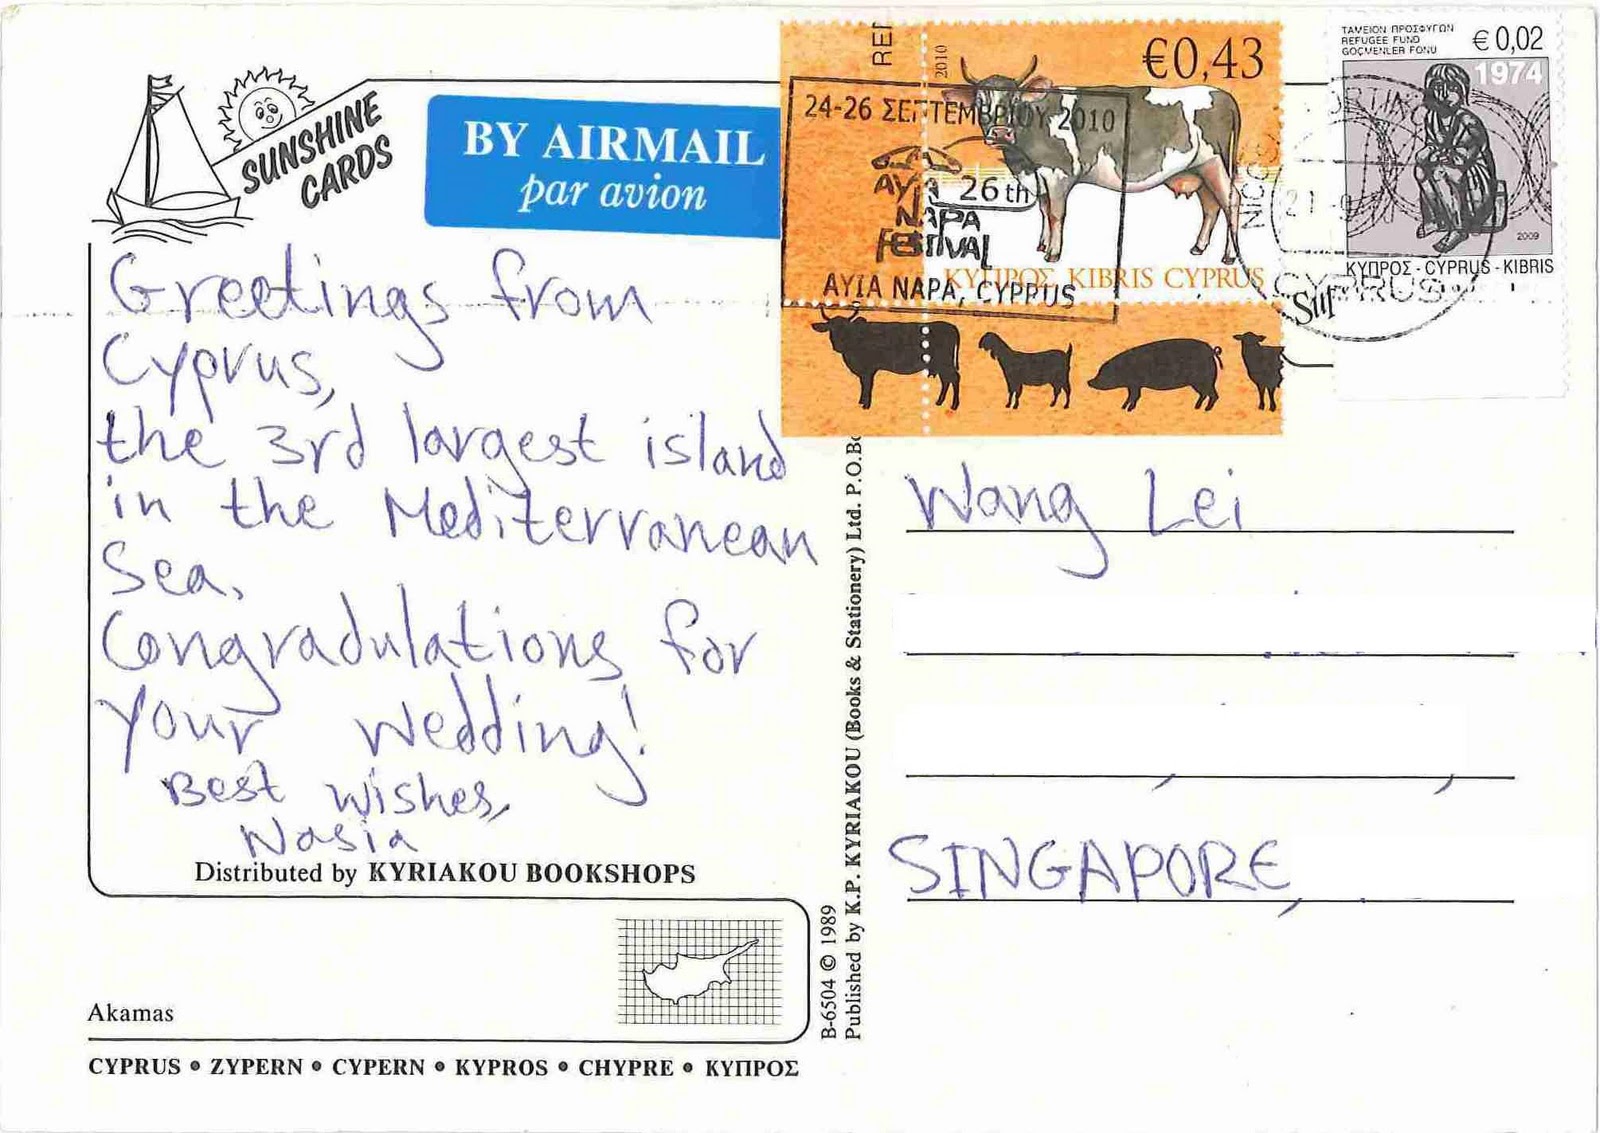 SUNSHINE
CARDS
BY AIRMAIL
par avion
2010
€0,43
24-26 ΣΕΠΤΕΜΒΡΙΟΥ 2010
26th
ΑΥΙΑ
NAPA
FESTIVAL
AYIA NAPA, CYPRUS
ΚΥΠΡΟΣ KIBRIS CYPRUS
ΤΑΜΕΙΟΝ ΠΡΟΣΦΥΓΩΝ
REFUGEE FUND
GÖÇMENLER FONU
€0,02
1974
2009
ΚΥΠΡΟΣ - CYPRUS - KIBRIS
CYPRUS
Greetings from
Cyprus,
the 3rd largest island
in the Mediterranean
Sea.
Congradulations for
your wedding!
Best wishes,
Nasia
Distributed by KYRIAKOU BOOKSHOPS
Akamas
CYPRUS • ZYPERN • CYPERN • KYPROS • CHYPRE • ΚΥΠΡΟΣ
B-6504 © 1989
Published by K.P. KYRIAKOU (Books & Stationery) Ltd. P.O.
Wang Lei
SINGAPORE,